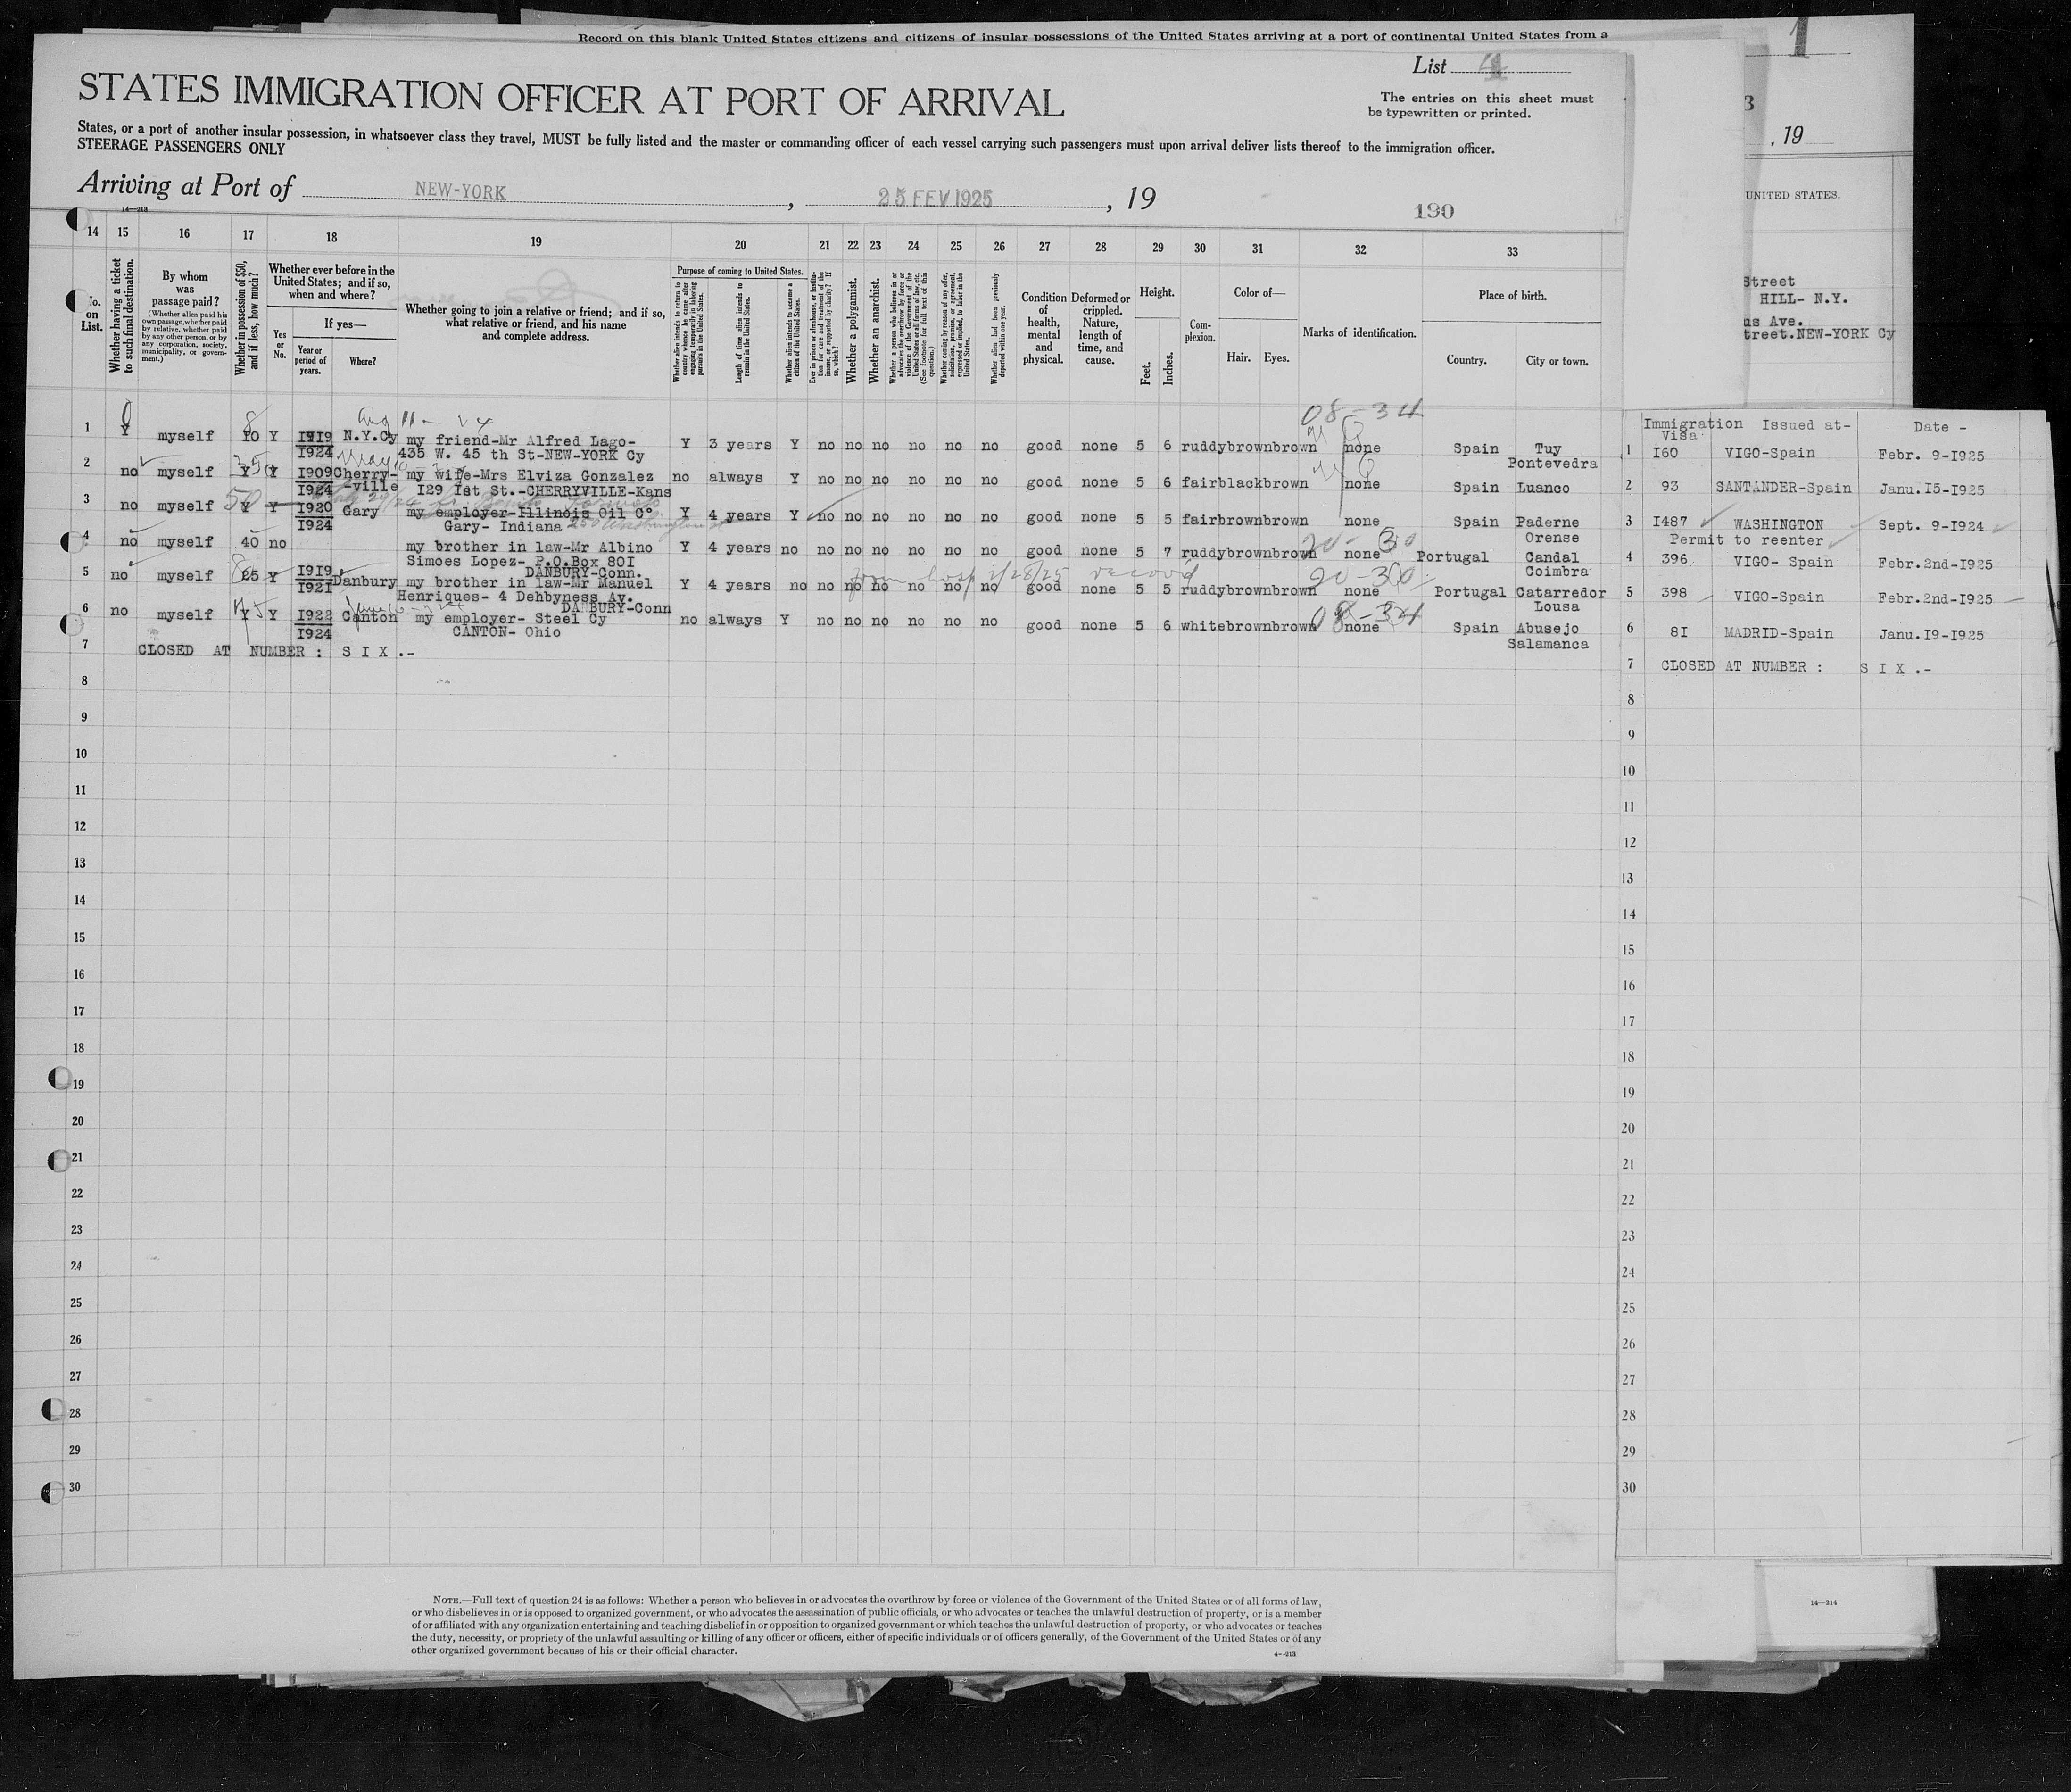 Record on this blank United States citizens and citizens of insular possessions of the United States arriving at a port of continental United States from a
List 4
STATES IMMIGRATION OFFICER AT PORT OF ARRIVAL
The entries on this sheet must
be typewritten or printed.
States, or a port of another insular possession, in whatsoever class they travel, MUST be fully listed and the master or commanding officer of each vessel carrying such passengers must upon arrival deliver lists thereof to the immigration officer.
STEERAGE PASSENGERS ONLY
Arriving at Port of NEW-YORK , 25 FEV 1925 , 19
190
14—213
14 15 16 17 18 19 20 21 22 23 24 25 26 27 28 29 30 31 32 33
No. on List.
Whether having a ticket to such final destination.
By whom was passage paid?
(Whether alien paid his own passage, whether paid by relative, whether paid by any other person, or by any corporation, society, municipality, or government.)
Whether in possession of $50, and if less, how much?
Whether ever before in the United States; and if so, when and where?
Yes or No.
If yes—
Year or period of years.
Where?
Whether going to join a relative or friend; and if so, what relative or friend, and his name and complete address.
Purpose of coming to United States.
Length of time alien intends to remain in the United States.
Whether alien intends to become a citizen of the United States.
Whether a polygamist.
Whether an anarchist.
Whether alien had been previously deported within one year.
Condition of health, mental and physical.
Deformed or crippled. Nature, length of time, and cause.
Height.
Feet. Inches.
Complexion.
Color of—
Hair. Eyes.
Marks of identification.
Place of birth.
Country. City or town.
Aug 11 - 24
08-34
1 Y myself 10 Y 1919 N.Y.Cy my friend-Mr Alfred Lago- Y 3 years Y no no no no no no good none 5 6 ruddy brown brown none Spain Tuy
1924 435 W. 45 th St-NEW-YORK Cy Pontevedra
2 no myself Y Y I909 Cherry- my wife-Mrs Elviza Gonzalez no always Y no no no no no no good none 5 6 fair black brown none Spain Luanco
I924 -ville I29 Ist St.-CHERRYVILLE-Kans
3 no myself 50 Y Y I920 Gary my employer-Illinois Oil C° Y 4 years Y no no no no no no good none 5 5 fair brown brown none Spain Paderne
I924 Gary- Indiana 250 Washington Orense
4 no myself 40 no my brother in law-Mr Albino Y 4 years no no no no no no no good none 5 7 ruddy brown brown none Portugal Candal
20-30
Simoes Lopez- P.O.Box 80I Coimbra
DANBURY-Conn.
5 no myself 25 Y I9I9 Danbury my brother in law-Mr Manuel Y 4 years no no no no no no no good none 5 5 ruddy brown brown none Portugal Catarredor
2/28/25 20-30
I92I Henriques- 4 Dehbyness Av. Lousa
DANBURY-Conn
6 no myself Y Y I922 Canton my employer- Steel Cy no always Y no no no no no no good none 5 6 white brown brown none Spain Abusejo
08-34
I924 CANTON- Ohio Salamanca
7 CLOSED AT NUMBER : S I X .-
8
9
10
11
12
13
14
15
16
17
18
19
20
21
22
23
24
25
26
27
28
29
30
NOTE.—Full text of question 24 is as follows: Whether a person who believes in or advocates the overthrow by force or violence of the Government of the United States or of all forms of law,
or who disbelieves in or is opposed to organized government, or who advocates the assassination of public officials, or who advocates or teaches the unlawful destruction of property, or is a member
of or affiliated with any organization entertaining and teaching disbelief in or opposition to organized government or which teaches the unlawful destruction of property, or who advocates or teaches
the duty, necessity, or propriety of the unlawful assaulting or killing of any officer or officers, either of specific individuals or of officers generally, of the Government of the United States or of any
other organized government because of his or their official character.
4—213
1
3
, 19
UNITED STATES.
Street
HILL- N.Y.
us Ave.
treet.NEW-YORK Cy
Immigration Issued at- Date -
Visa
1 I60 VIGO-Spain Febr. 9-I925
2 93 SANTANDER-Spain Janu.I5-I925
3 I487 WASHINGTON Sept. 9-I924
Permit to reenter
4 396 VIGO- Spain Febr.2nd-I925
5 398 VIGO-Spain Febr.2nd-I925
6 8I MADRID-Spain Janu.I9-I925
7 CLOSED AT NUMBER : S I X .-
8
9
10
11
12
13
14
15
16
17
18
19
20
21
22
23
24
25
26
27
28
29
30
14—214